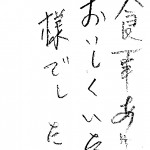 食事あり
おいしくいた
様でした